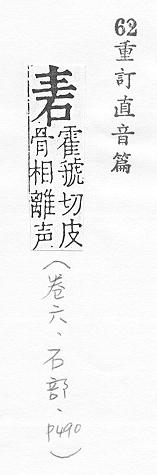 62重訂直音篇
砉
霍虢切皮
骨相離声
(卷六、石部、p490)